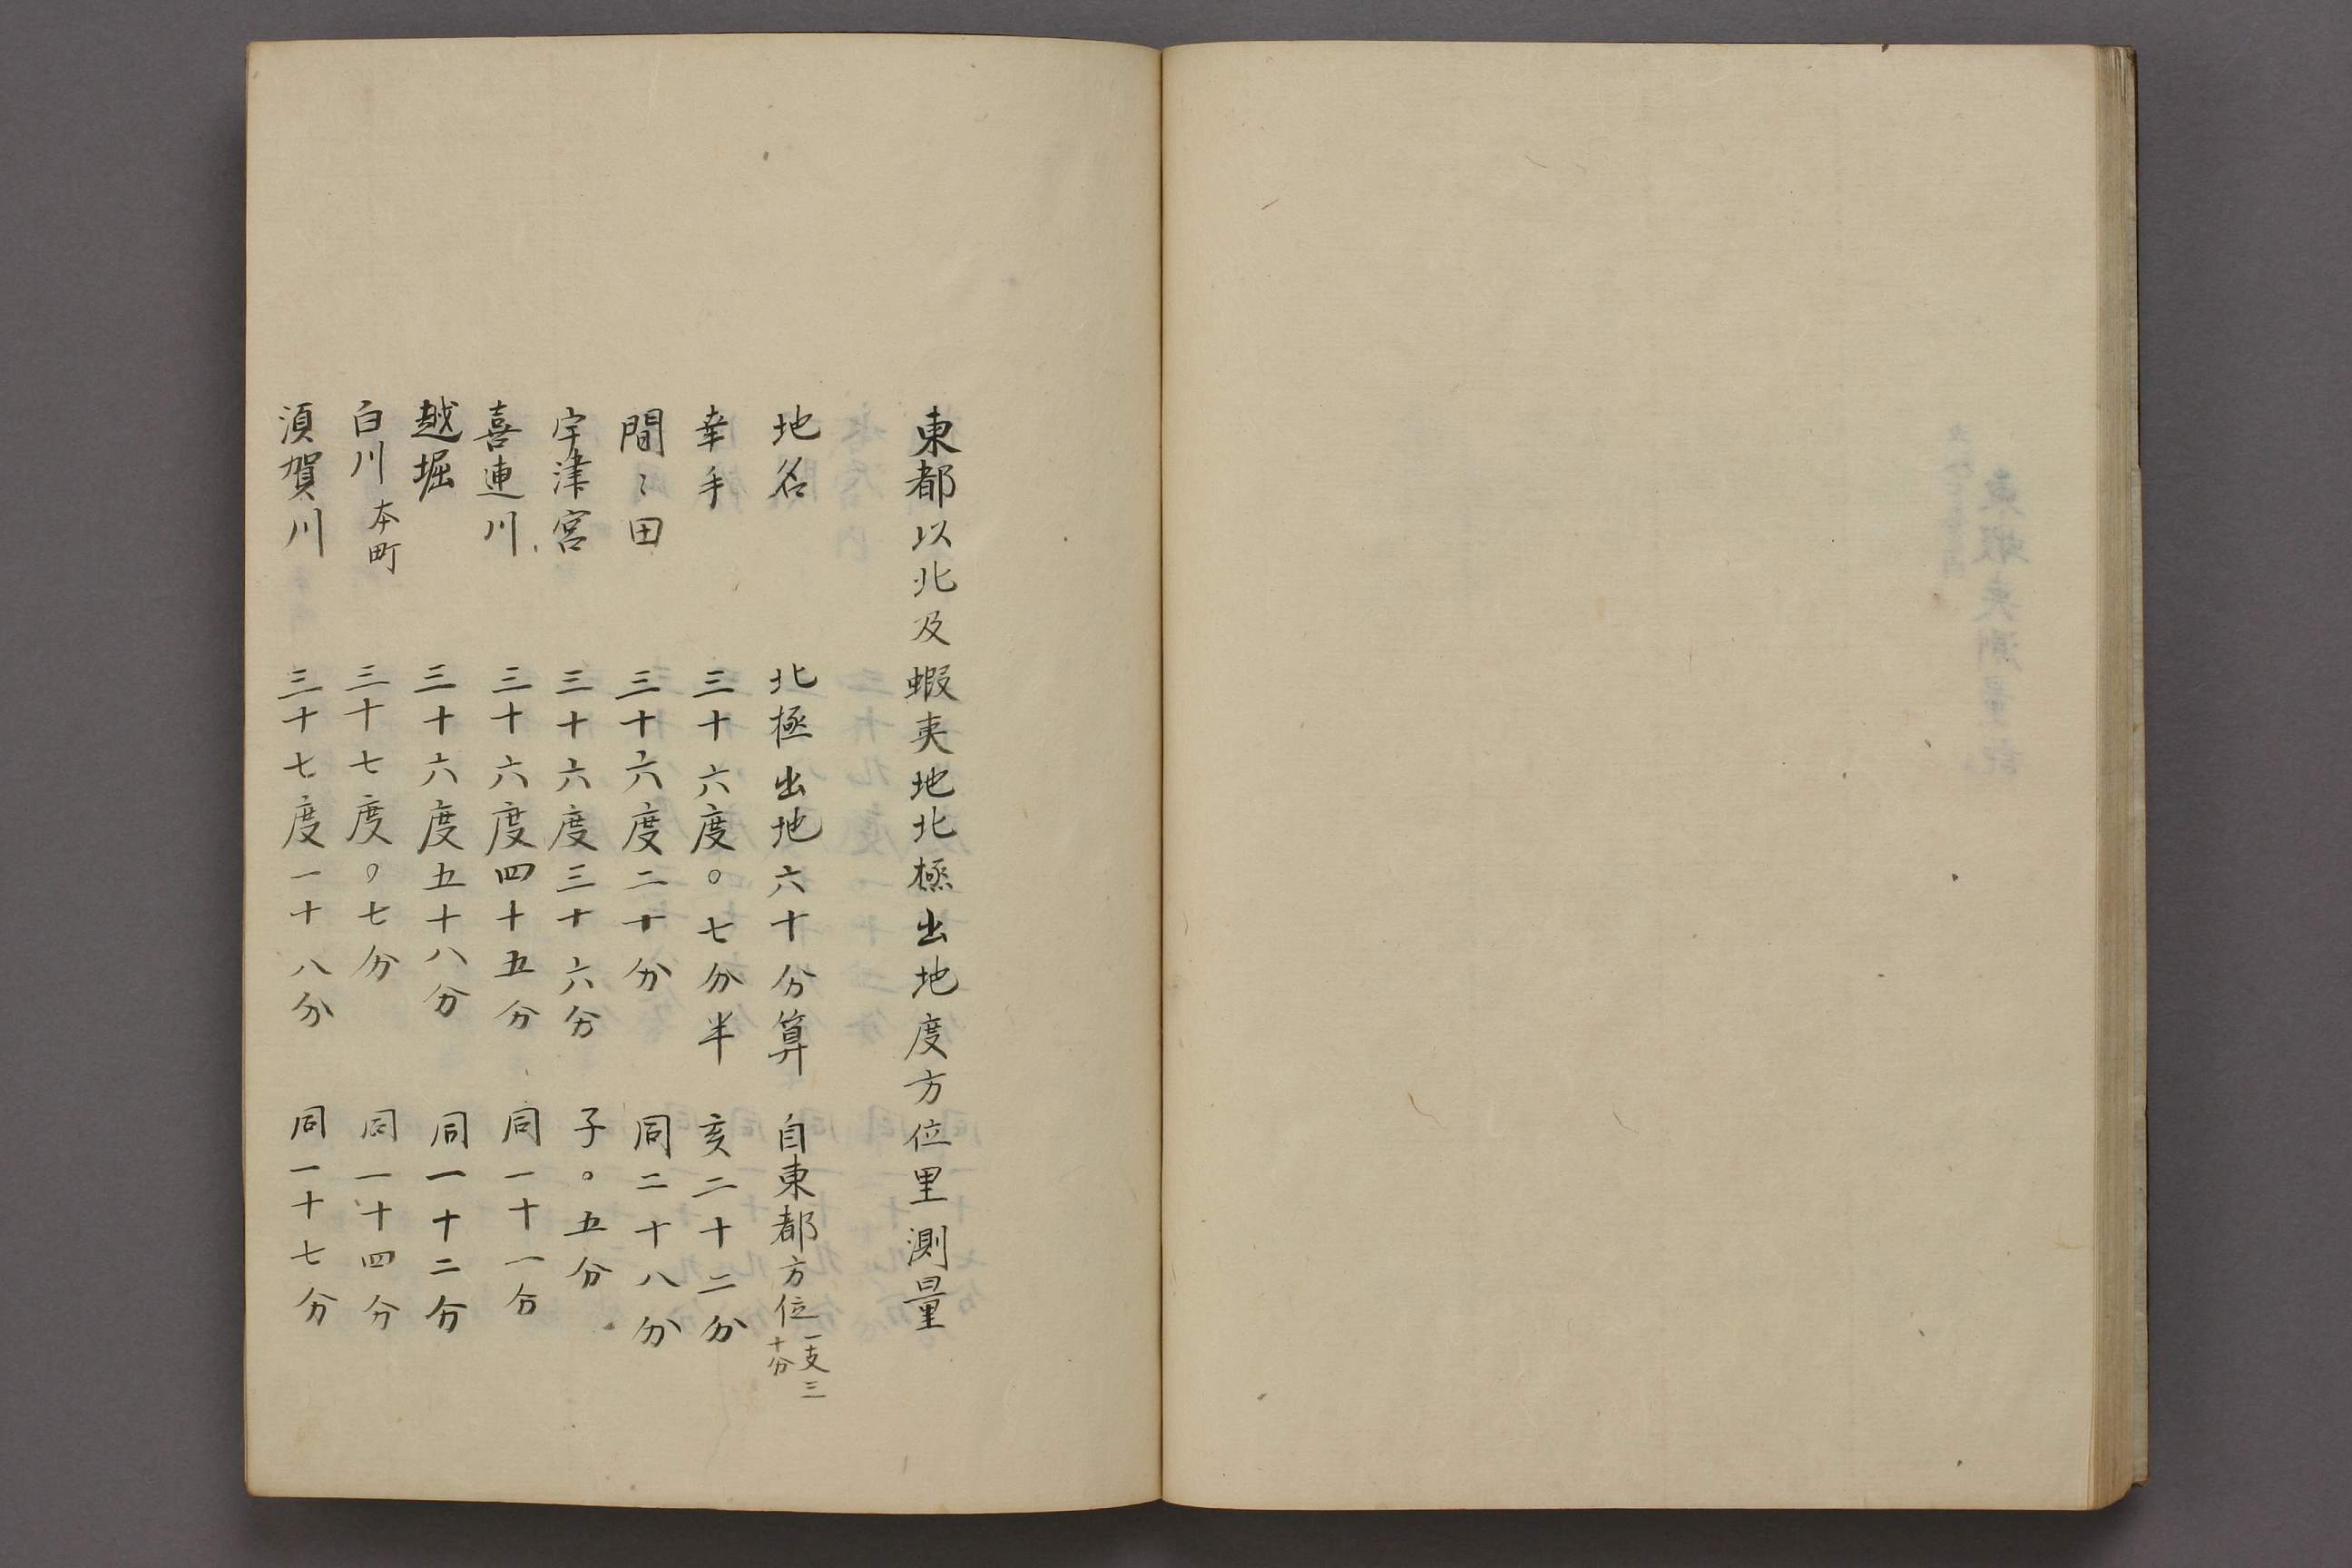 東都以北及蝦夷地北極出地度方位里測量
地名 北極出地六十分算 自東都方位一支三十分
幸手 三十六度〇七分半 亥二十二分
間〻田 三十六度二十分 同二十八分
宇津宮 三十六度三十六分 子〇五分
喜連川 三十六度四十五分 同一十一分
越堀 三十六度五十八分 同一十二分
白川本町 三十七度〇七分 同一十四分
須賀川 三十七度一十八分 同一十七分